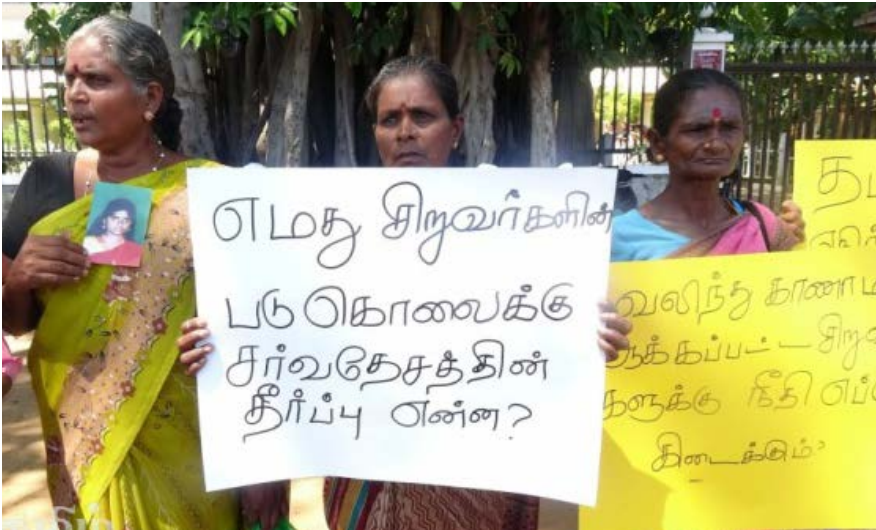 எமது சிறுவர்களின்
படுகொலைக்கு
சர்வதேசத்தின்
தீர்ப்பு என்ன?
வலிந்து காணாம
ஆக்கப்பட்ட சிறுவ
களுக்கு நீதி எப்
கிடைக்கும்?